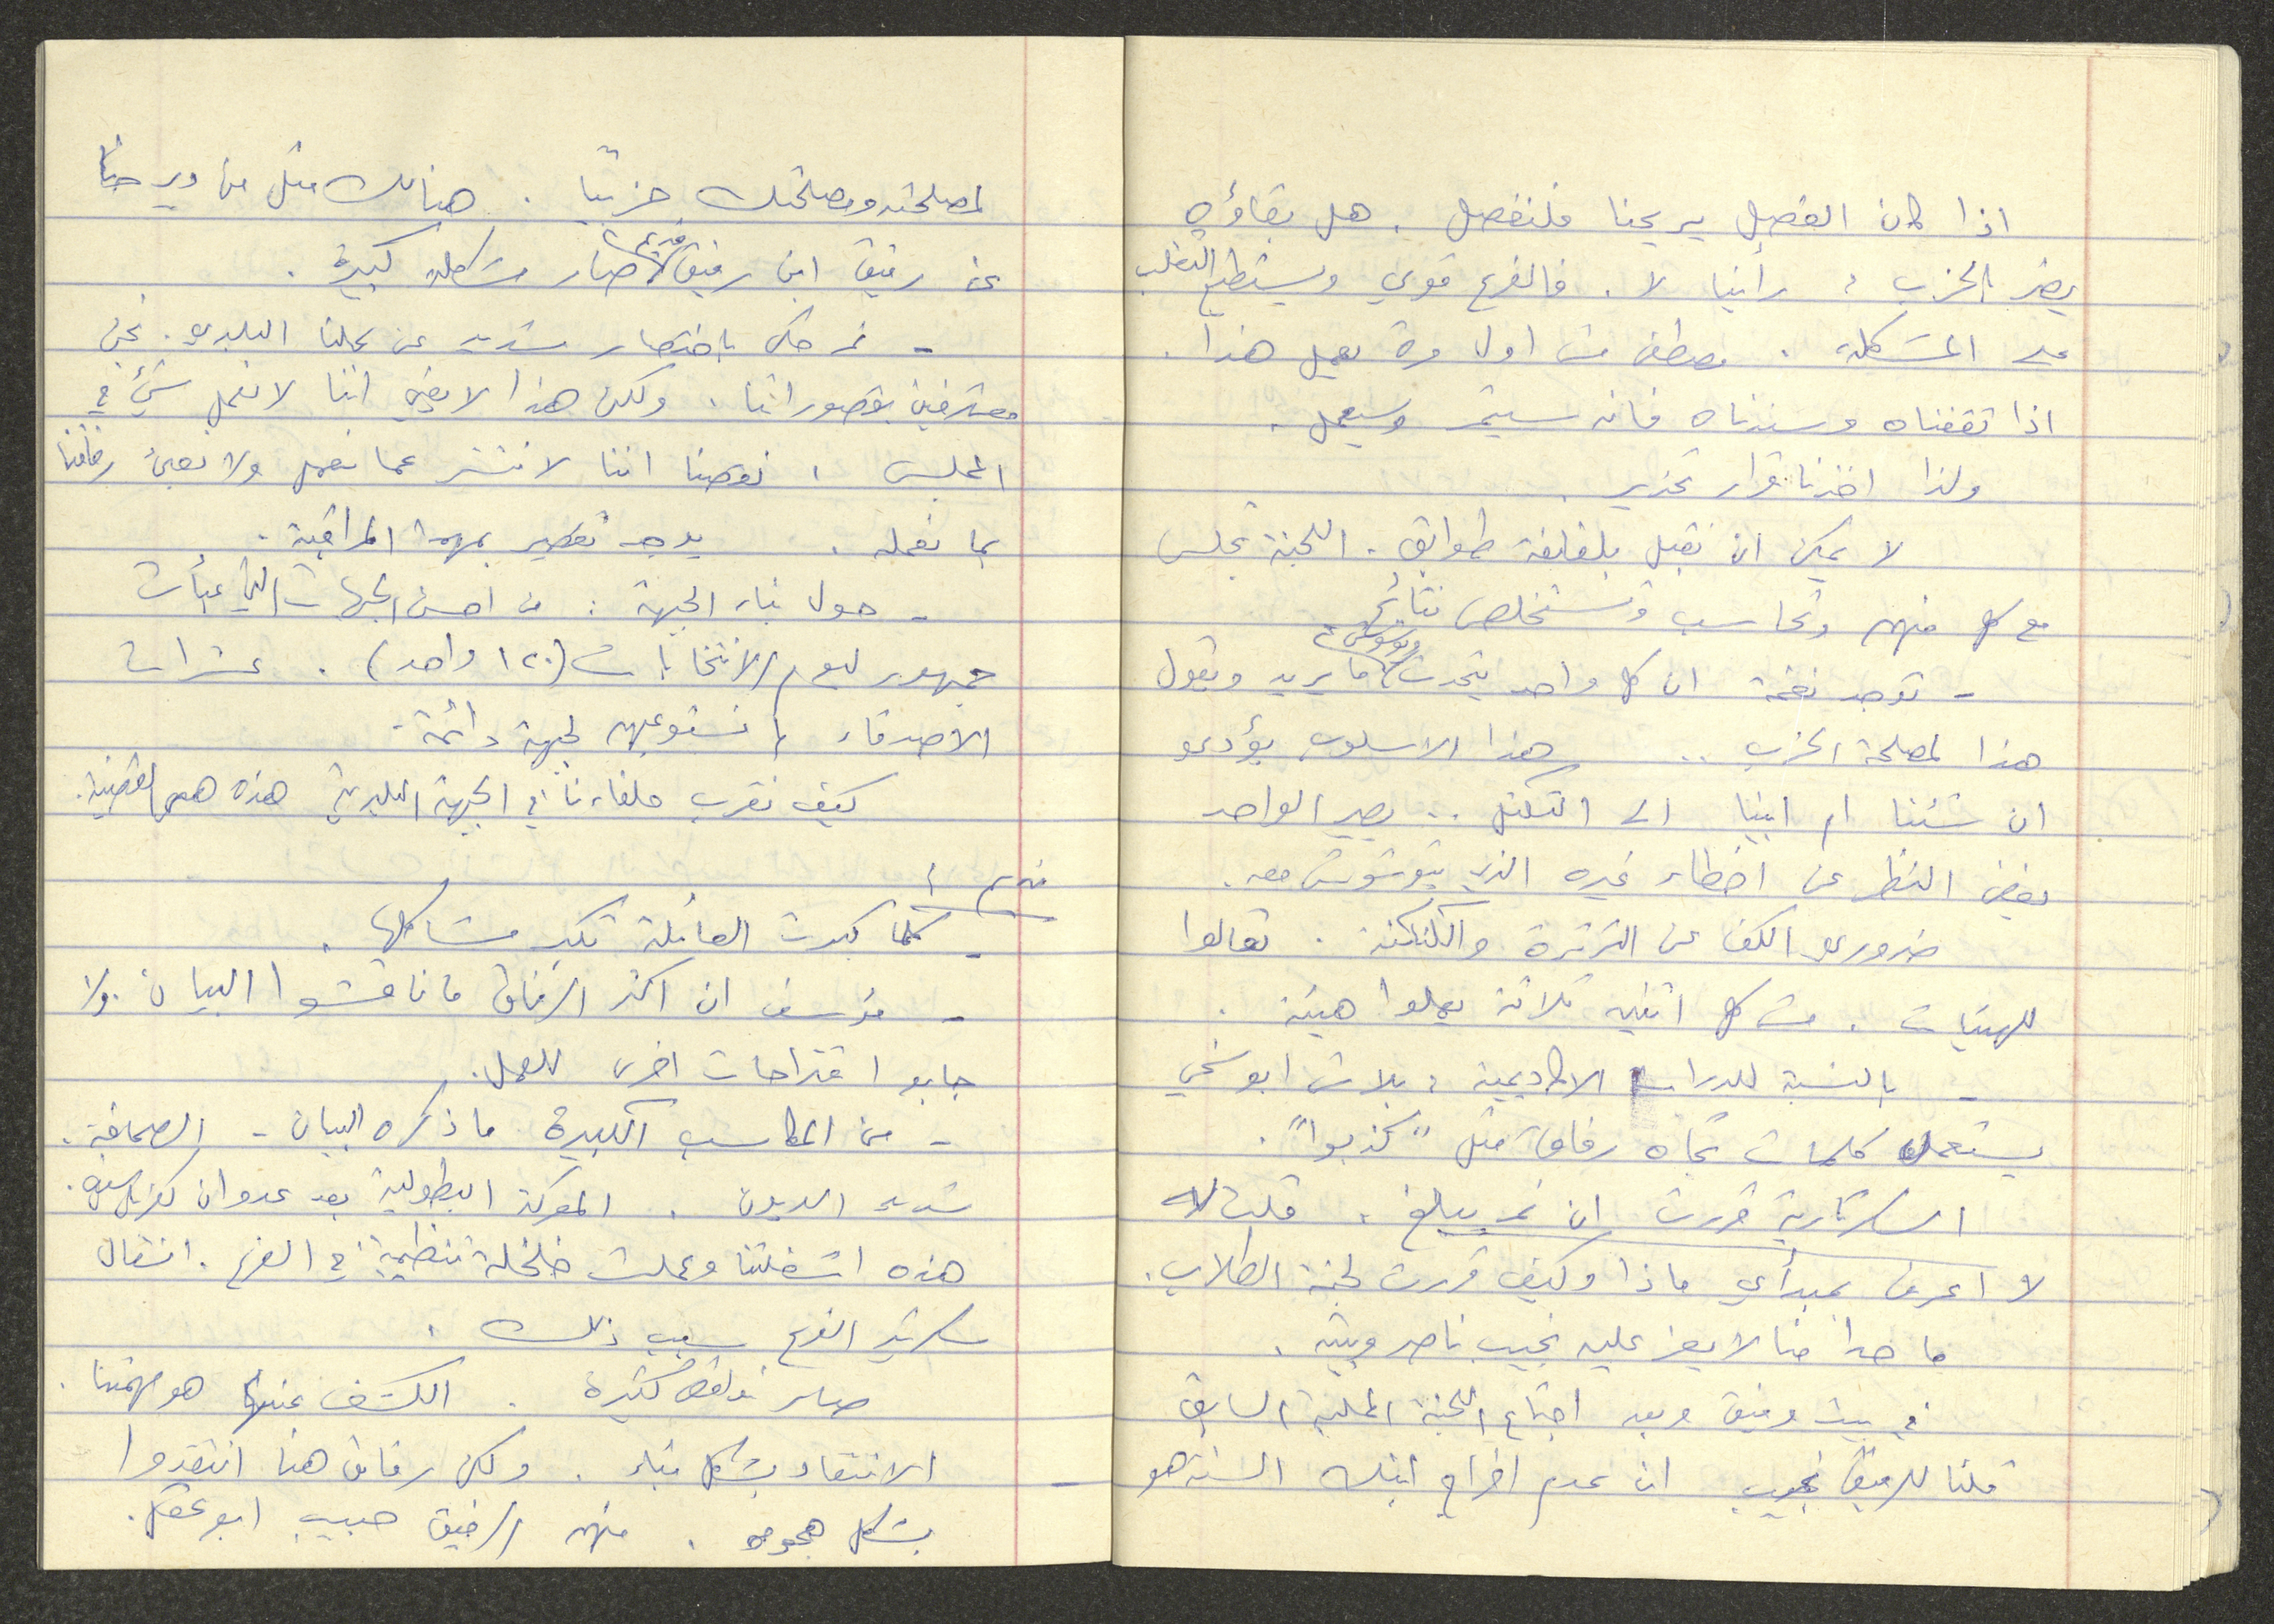 اذا كان الفصل يريحنا فلنفصل . هل بقاؤه
يضر بالحزب ؟ رأينا لا . فالفرع قوي ويستطيع التغلب
على المشكلة . مصطفى مش اول مرة بعمل هذا .
اذا ثقفناه وسندناه فانه سيتمر وسيعمل .
ولذا اخذنا قرار تحذير .
لا يمكن ان نقبل بلفلفة طوابق . اللجنة تجلس
مع كل منهم وتحاسب وتستخلص نتائج
- توجد نغمة ان كل واحد يتحدث ويوشوش ما يريد ويقول
هذا لمصلحة الحزب .. هذا الاسلوب يؤدي
ان شئنا ام ابينا الى التكتل .. يصير الواحد
يغض النظر عن اخطاء غيره الذي يتوشوش معه .
ضروري الكف عن الثرثرة والتكتكة . تعالوا
للهيئات . مش كل اثنين ثلاثة يعملوا هيئة .
- بالنسبة للدراسة الاكاديمية : بلاش ابو شخي
يستعمل كلمات تجاه رفاق مثل "كذبوا" .
السكرتارية قررت ان نمر يبلغ . قلت له
لا اعرف بمبدأي ماذا وكيف قررت لجنة الطلاب .
ما حدا منا لا يعز عليه نجيب ناصر وبيته .
في بيت وفيق وبعد اجتماع اللجنة المحلية السابق
قلنا للرفيق نجيب ان عدم اخراج ابنك السنة هو
لمصلحته ومصلحتك حزبيا . هنالك مثل من دير حنا
عن رفيق ابن رفيق قديم صار مشكلة كبيرة .
- نمر حكى باختصار شديد عن عملنا البلدي . نحن
معترفين بقصوراتنا . ولكن هذا لا يعني اننا لا نعمل شيء في
المجلس . نوهنا اننا لا ننشر عما نعمل ولا نعبئ رفاقنا
بما نعمله . يوجد تقصير بمهمة المراقبة .
- حول بناء الجبهة : من احسن الجبهات التي عبأت
جمهور ليوم الانتخابات (١٢٠ واحد) . عشرات
الاصدقاء لم نستوعبهم لجبهة دائمة .
كيف نقرب حلفاءنا في الجبهة البلدية هذه هي القضية .
نديم :
- كلما كبرت العائلة تكبر مشاكلها .
- مؤسف ان اكثر الرفاق ما ناقشوا البيان . ولا
جابوا اقتراحات اخرى للعمل .
- من المكاسب الكبيرة ما ذكره البيان - الصحافة .
تسديد الديون . المعركة البطولية بعد عدوان كفر ياسيف .
هذه اشغلتنا وعملت خلخلة تنظيمية في الفرع . انشغال
سكرتير الفرع سبب ذلك .
صار نواقص كثيرة . الكشف عنها هو مهمتنا .
- الانتقاد بشكل بناء . ولكن رفاق هنا انتقدوا
بشكل هجومي . منهم الرفيق حبيب ابو عقل .